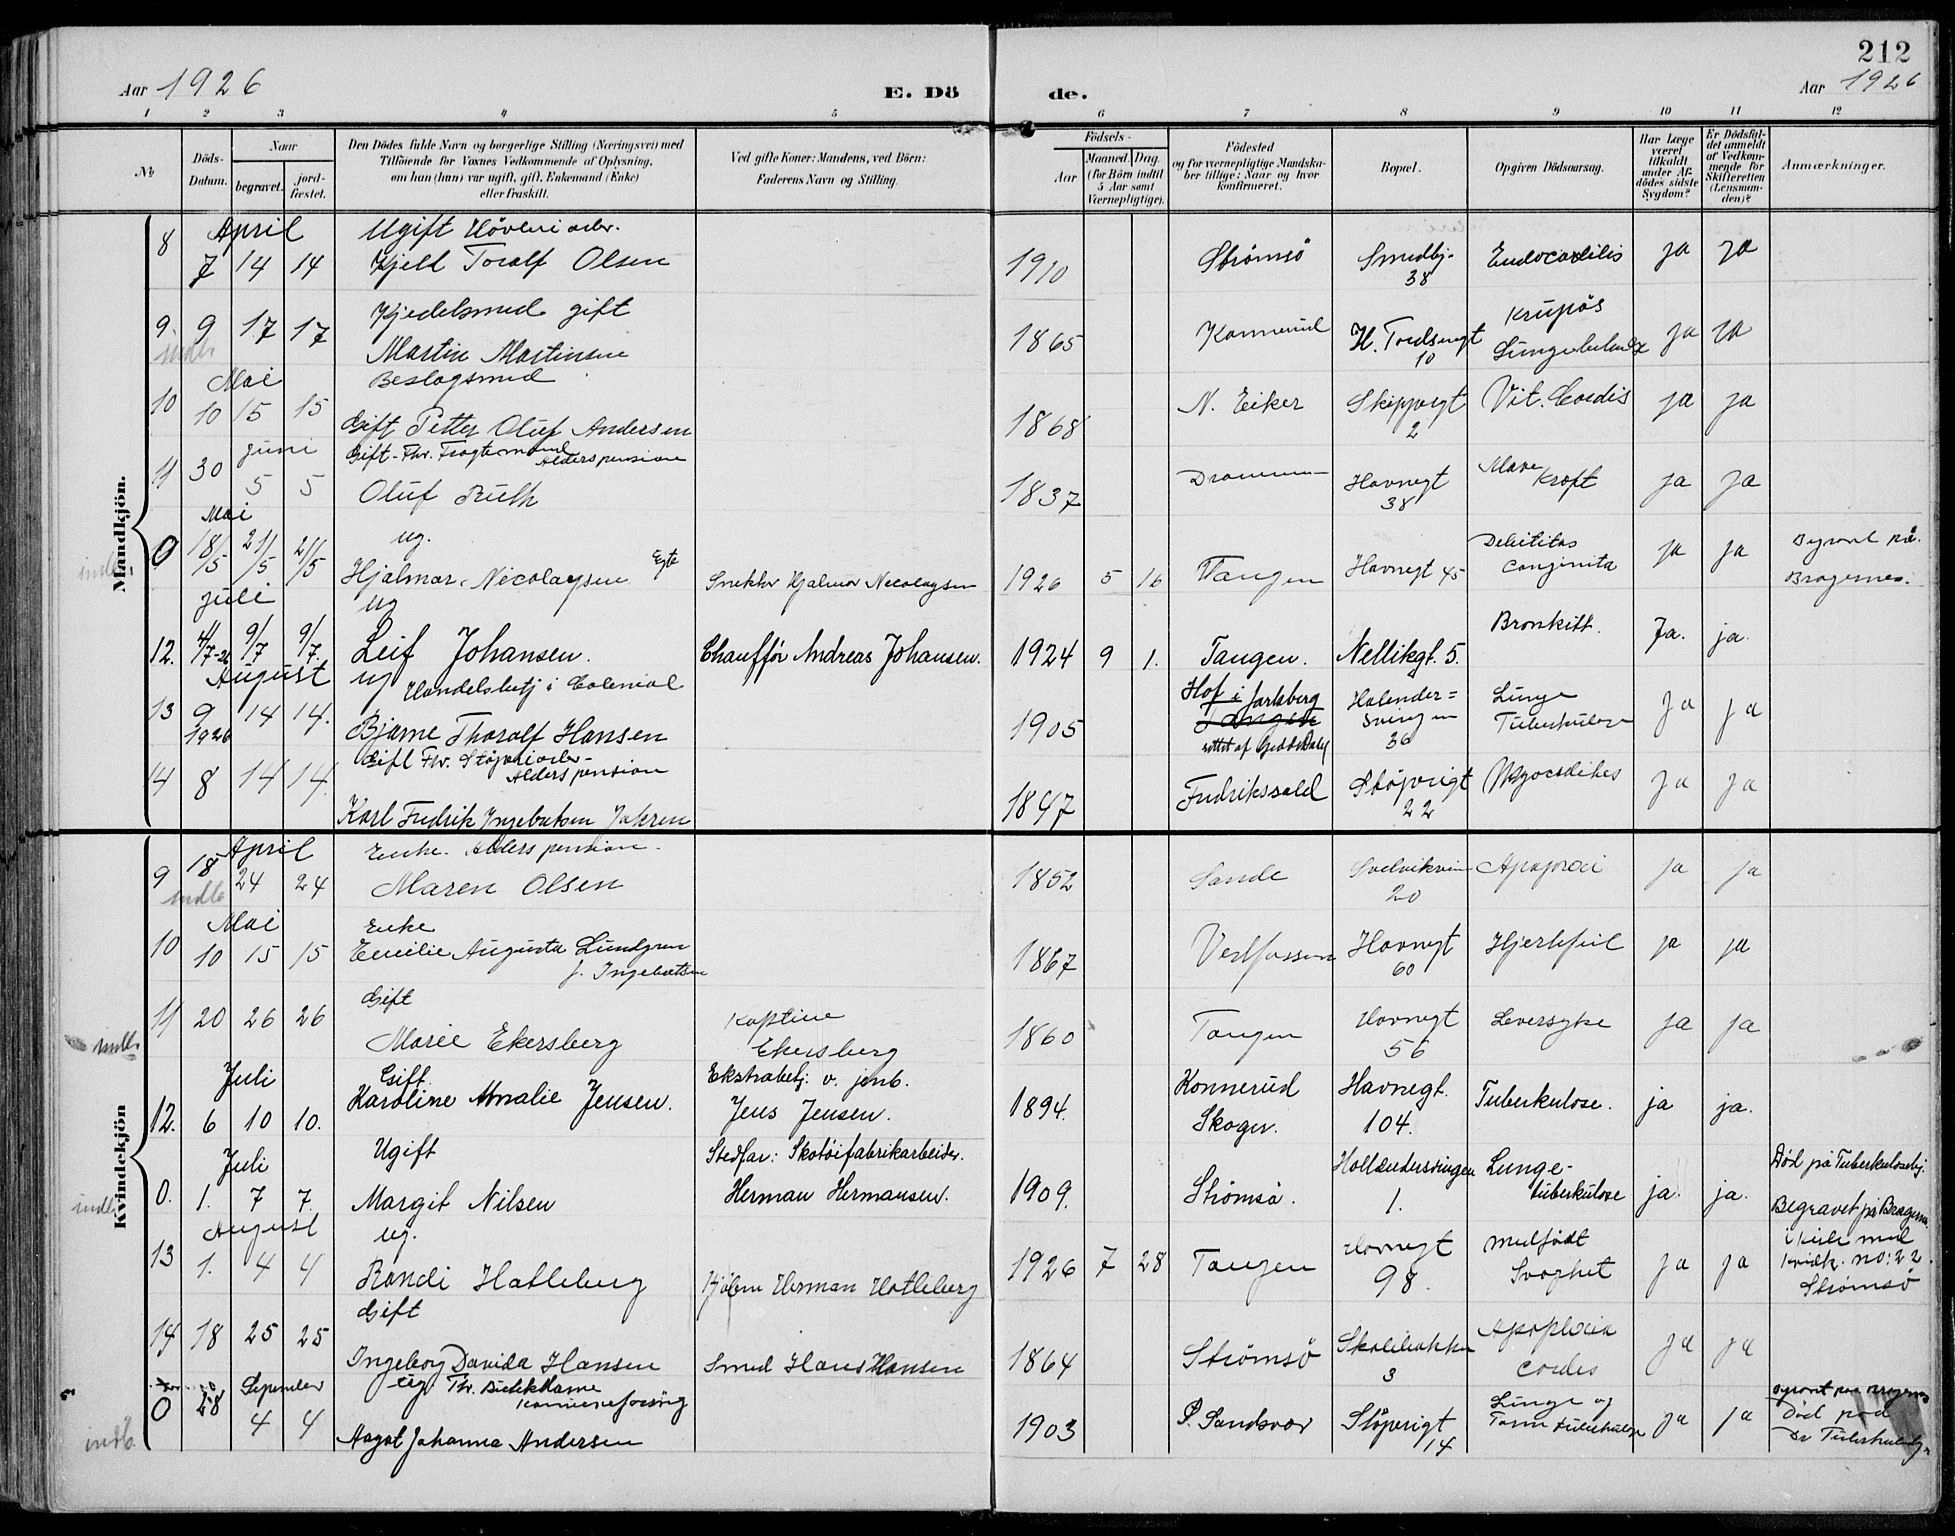 212
Aar 1926 E. Dö de. Aar 1926
1 2 3 4 5 6 7 8 9 10 11 12
No
Döds-Datum.
Naar
begravet.
jordfæstet.
Den Dödes fulde Navn og borgerlige Stilling (Næringsvei) med
Tilföiende for Voxnes Vedkommende af Oplysning,
om han (hun) var ugift, gift, Enkemand (Enke)
eller fraskilt.
Ved gifte Koner: Mandens, ved Börn:
Faderens Navn og Stilling.
Födsels-
Aar
Maaned. Dag.
(for Börn indtil
5 Aar samt
Værnepligtige).
Födested
og for værnepligtige Mandska-
ber tillige: Naar og hvor
konfirmeret.
Bopæl.
Opgiven Dödsaarsag.
Har Læge
været
tilkaldt
under Af-
dödes sidste
Sygdom?
Er Dödsfal-
det anmeldt
af Vedkom-
mende for
Skifteretten
(Lensman-
den)?
Anmærkninger.
Mandkjön.
April Ugift Høvleri arb.
8 7 14 14 Kjell Toralf Olsen 1910 Strømsø Smedbj. 38 Endocarditis ja ja
Kjedelsmed gift
9. 9 17 17 Martin Martinsen 1865 Konnerud H. Tordsengt 10 Krupøs ja ja
Mai Beslagsmed
10 10 15 15 Gift Petter Oluf Andersen 1868 N. Eiker Skippergt 2 Vit. Cordis ja ja
Juni Gift - Fhv. Alderspension
11 30 5 5 Oluf Ruth 1837 Drammen Havnegt 38 Mave Kræft ja ja
Mai ug.
0 18/5 21/5 21/5 Hjalmar Nicolaysen Egte Snekker Hjalmar Nicolaysen 1926 5 16 Tangen Havnegt 45 Debilitas congenita ja ja Bragernes.
indb.
Juli ug
12. 4/7-26 9/7 9/7. Leif Johansen. Chauffør Andreas Johansen. 1924 9 1. Tangen. Nellikgt. 5. Bronkitt. Ja. ja.
August ug Handelsbetj i Colonial
13 9 1926 14 14. Bjarne Thoralf Hansen 1905 Hof i Jarlsberg Tangen rettet af 36 Lunge Tuberkulose Ja ja
Gift Fhv. Støperiarb- Alders pension
14 8 14 14. Karl Fredrik Ingebretsen 1847 Fredrikshald Støperigt 22 ja ja
Kvindekjön
April Enke. Alders pension.
9 18 24 24 Maren Olsen 1852 Sande Svelvikvn 20 ja ja
indb
Mai Enke
10 10 15 15 Emilie Augusta Lundgren f. Ingebretsen 1867 Vestfossen Havnegt 60 Hjertefeil ja ja
Gift Kaptein
11 20 26 26 Marie Ekersberg Ekersberg 1860 Tangen Havnegt 56 Leversyke ja ja
indb.
Juli Gift. Ekstrabetj. v. jenb.
12. 6 10 10. Karoline Amalie Jensen. Jens Jensen. 1894. Konnerud Skoger. Havnegt. 104. Tuberkulose. ja ja.
Juli Ugift Stedfar: Skotøifabrikarbeider.
0. 1. 7 7. Margit Nilsen Herman Hermansen. 1909. Strømsø. Hollendersvingen 1. Lunge-tuberkulose ja. ja. Død på Tuberkulosehj.
Begravet på Bragernes
indb.
August ug.
13 1. 4 4 Randi Hatleberg Herman Hatleberg 1926 7 28 Tangen Havnegt 98. medfødt Svaghet ja ja
no: 22
Strømsø
Gift
14 18 25 25 Ingeborg Davida Hansen Smed Hans Hansen 1864 Strømsø Skolebakken 3 cordis ja ja
September ug Fhv.
0 28 4 4 Aagot Johanna Andersen 1903 S. Sandsvær Støperigt 14 Lunge og Tarm tuberkulose ja ja Død paa
indb.